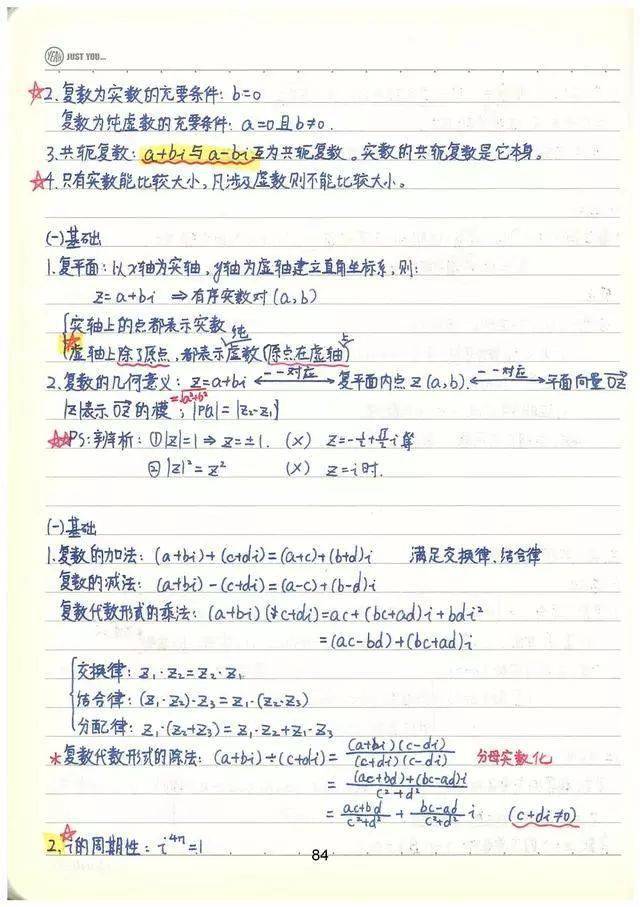 YEAH JUST YOU...
☆2. 复数为实数的充要条件: b=0
复数为纯虚数的充要条件: a=0且b≠0.
3. 共轭复数: a+bi与a-bi互为共轭复数。实数的共轭复数是它本身。
☆4. 只有实数能比较大小,凡涉及虚数则不能比较大小。
(一)基础
1. 复平面: 以x轴为实轴, y轴为虚轴建立直角坐标系, 则:
z=a+bi ⇒有序实数对(a,b)
{实轴上的点都表示实数
☆ 虚轴上除了原点, 都表示纯虚数(原点在虚轴上)
2. 复数的几何意义: z=a+bi ←一一对应→ 复平面内点Z(a,b) ←一一对应→ 平面向量OZ
|z|表示OZ的模=√a²+b²; |PQ|=|z₂-z₁|
☆☆PS: 辨析: ①|z|=1⇒z=±1. (×) z=-½+√3/2 i等
②|z|²=z² (×) z=i时.
(一)基础
1. 复数的加法: (a+bi)+(c+di)=(a+c)+(b+d)i 满足交换律、结合律
复数的减法: (a+bi)-(c+di)=(a-c)+(b-d)i
复数代数形式的乘法: (a+bi)(c+di)=ac+(bc+ad)i+bdi²
=(ac-bd)+(bc+ad)i
{交换律: z₁·z₂=z₂·z₁
结合律: (z₁·z₂)·z₃=z₁·(z₂·z₃)
分配律: z₁·(z₂+z₃)=z₁·z₂+z₁·z₃
*复数代数形式的除法: (a+bi)÷(c+di)=(a+bi)(c-di)/(c+di)(c-di) 分母实数化
=(ac+bd)+(bc-ad)i/c²+d²
=ac+bd/c²+d² + bc-ad/c²+d² i (c+di≠0)
2.☆i的周期性: i⁴ⁿ=1
84